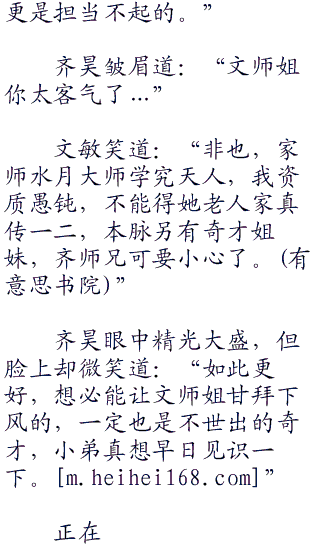 更是担当不起的。”
齐昊皱眉道：“文师姐
你太客气了…”
文敏笑道：“非也，家
师水月大师学究天人，我资
质愚钝，不能得她老人家真
传一二，本脉另有奇才姐
妹，齐师兄可要小心了。(有
意思书院)”
齐昊眼中精光大盛，但
脸上却微笑道：“如此更
好，想必能让文师姐甘拜下
风的，一定也是不世出的奇
才，小弟真想早日见识一
下。[m.heihei168.com]”
正在